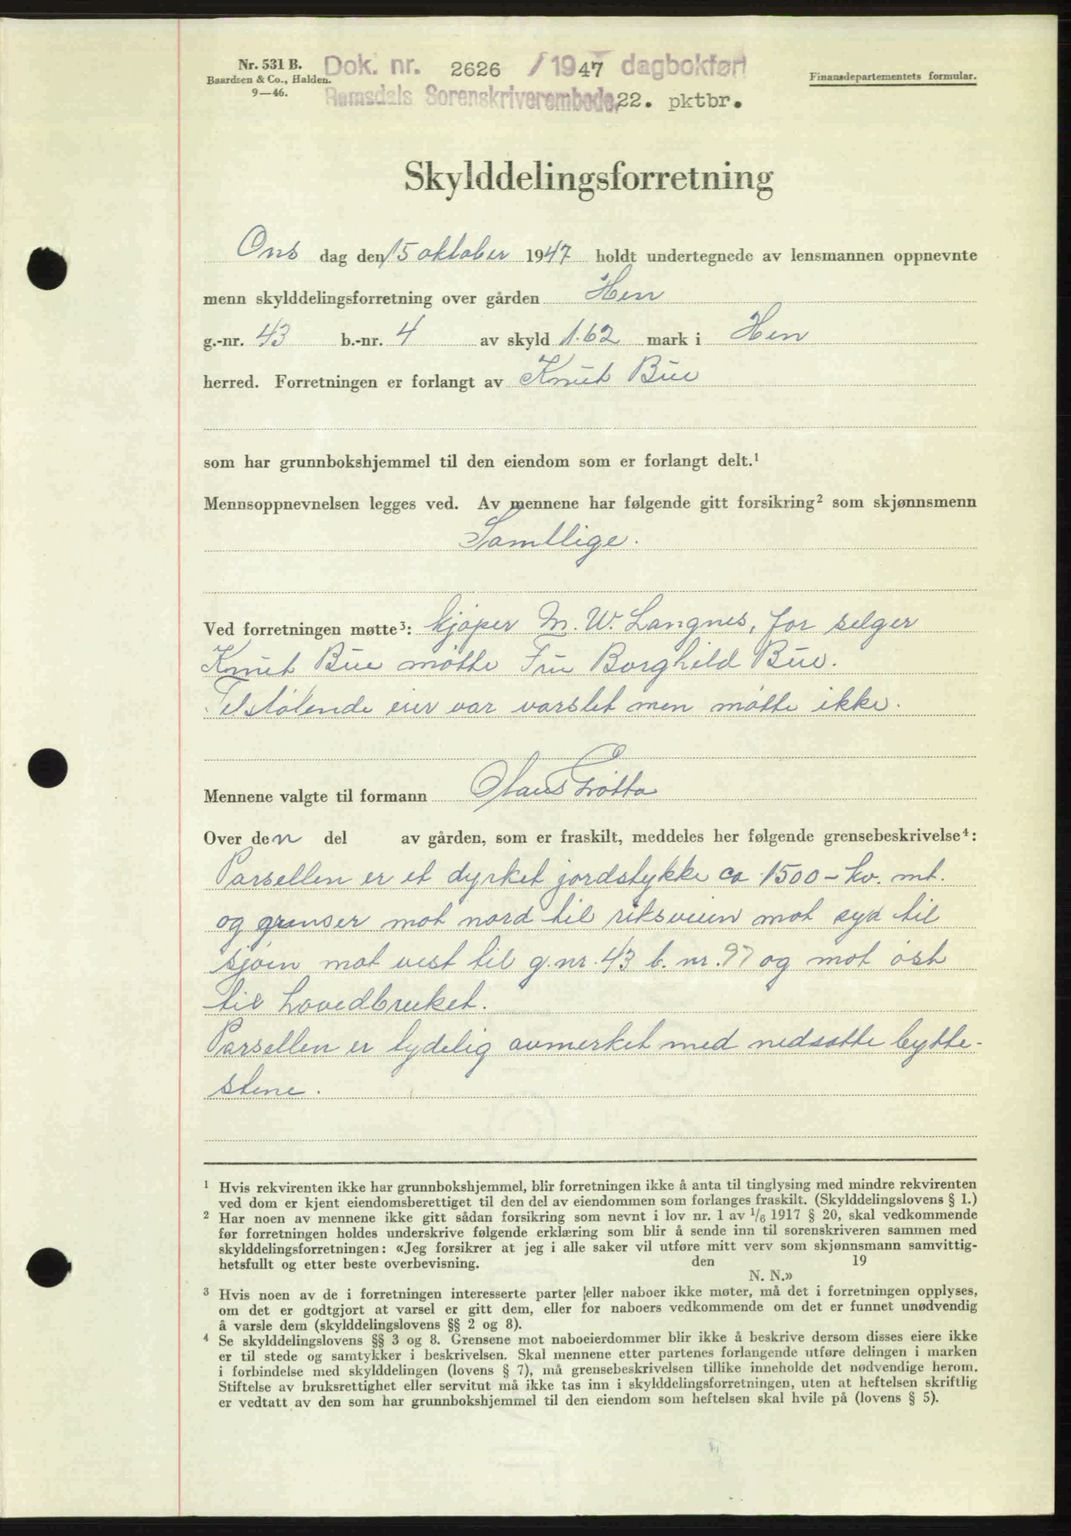 Nr. 531 B.
Baardsen & Co., Halden.
9—46.
Dok. nr. 2626 / 1947 dagbokført
Romsdals Sorenskriverembede, 22. pktbr.
Finansdepartementets formular.
Skylddelingsforretning
Ons dag den 15 oktober 1947 holdt undertegnede av lensmannen oppnevnte
menn skylddelingsforretning over gården Hen
g.-nr. 43 b.-nr. 4 av skyld 1.62 mark i Hen
herred. Forretningen er forlangt av Knut Bue
som har grunnbokshjemmel til den eiendom som er forlangt delt.¹
Mennsoppnevnelsen legges ved. Av mennene har følgende gitt forsikring² som skjønnsmenn
Samtlige.
Ved forretningen møtte³: kjøper M. W. Langnes, for selger
Knut Bue møtte Fru Borghild Bue.
Tilstøtende eier var varslet men møtte ikke.
Mennene valgte til formann Claus Grøtta
Over den del av gården, som er fraskilt, meddeles her følgende grensebeskrivelse⁴:
Parsellen er et dyrket jordstykke ca 1500 - kv. mt.
og grenser mot nord til riksveien mot syd til
sjøen mot vest til g. nr. 43 b. nr. 97 og mot øst
til hovedbruket.
Parsellen er tydelig avmerket med nedsatte bytte-
stene.
¹ Hvis rekvirenten ikke har grunnbokshjemmel, blir forretningen ikke å anta til tinglysing med mindre rekvirenten
ved dom er kjent eiendomsberettiget til den del av eiendommen som forlanges fraskilt. (Skylddelingslovens § 1.)
² Har noen av mennene ikke gitt sådan forsikring som nevnt i lov nr. 1 av 1/6 1917 § 20, skal vedkommende
før forretningen holdes underskrive følgende erklæring som blir å sende inn til sorenskriveren sammen med
skylddelingsforretningen: «Jeg forsikrer at jeg i alle saker vil utføre mitt verv som skjønnsmann samvittig-
hetsfullt og etter beste overbevisning. den 19
N. N.»
³ Hvis noen av de i forretningen interesserte parter eller naboer ikke møter, må det i forretningen opplyses,
om det er godtgjort at varsel er gitt dem, eller for naboers vedkommende om det er funnet unødvendig
å varsle dem (skylddelingslovens §§ 2 og 8).
⁴ Se skylddelingslovens §§ 3 og 8. Grensene mot naboeierdommer blir ikke å beskrive dersom disses eiere ikke
er til stede og samtykker i beskrivelsen. Skal mennene etter partenes forlangende utføre delingen i marken
i forbindelse med skylddelingen (lovens § 7), må grensebeskrivelsen tillike inneholde det nødvendige herom.
Stiftelse av bruksrettighet eller servitut må ikke tas inn i skylddelingsforretningen, uten at heftelsen skriftlig
er vedtatt av den som har grunnbokshjemmel til den eiendom som heftelsen skal hvile på (lovens § 5).